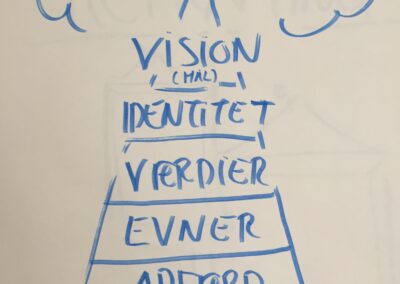 VISION
(MÅL)
IDENTITET
VÆRDIER
EVNER